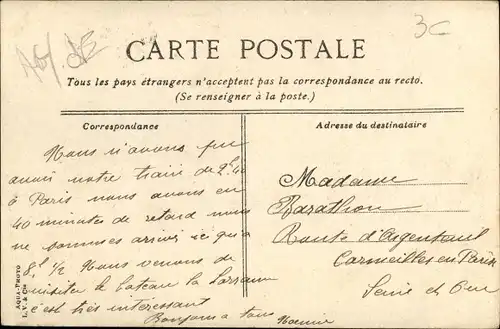 3c
CARTE POSTALE
Tous les pays étrangers n'acceptent pas la correspondance au recto.
(Se renseigner à la poste.)
Correspondance
Nous n'avons pu
avoir notre train de 2h40
à Paris nous avons eu
40 minutes de retard nous
ne sommes arrivés ici qu'à
8h 1/2 Nous venons de
visiter le bateau la
c'est très intéressant
Bonjour à tous
Adresse du destinataire
Madame
Marathon
Route d'Argenteuil
Cormeilles en Parisis
Seine et Oise
AQUA-PHOTO
L. V. & Cie